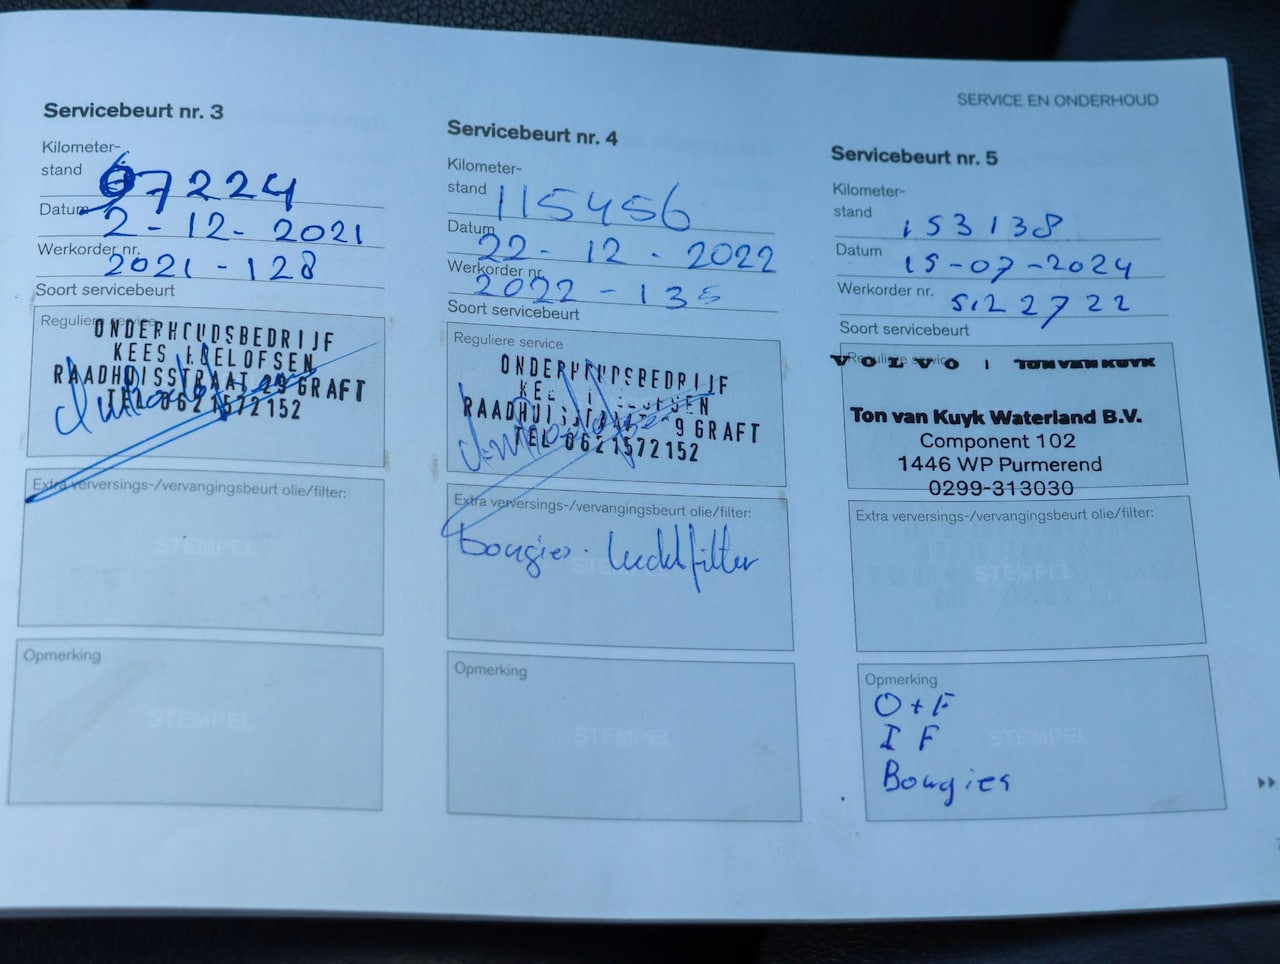 SERVICE EN ONDERHOUD
Servicebeurt nr. 3
Kilometer-
stand 97224
Datum 2-12-2021
Werkorder nr. 2021-128
Soort servicebeurt
Reguliere service
ONDERHOUDSBEDRIJF
KEES ROELOFSEN
RAADHUISSTRAAT 29 GRAFT
TEL 0621572152
Extra verversings-/vervangingsbeurt olie/filter:
STEMPEL
Opmerking
STEMPEL
Servicebeurt nr. 4
Kilometer-
stand 115456
Datum 22-12-2022
Werkorder nr. 2022-135
Soort servicebeurt
Reguliere service
ONDERHOUDSBEDRIJF
KEES ROELOFSEN
RAADHUISSTRAAT 29 GRAFT
TEL 0621572152
Extra verversings-/vervangingsbeurt olie/filter:
Bougies. luchtfilter
STEMPEL
Opmerking
STEMPEL
Servicebeurt nr. 5
Kilometer-
stand 153138
Datum 15-07-2024
Werkorder nr. 5122722
Soort servicebeurt
Reguliere service
VOLVO | TON VAN KUYK
Ton van Kuyk Waterland B.V.
Component 102
1446 WP Purmerend
0299-313030
Extra verversings-/vervangingsbeurt olie/filter:
STEMPEL
Opmerking
O+F
IF
STEMPEL
Bougies